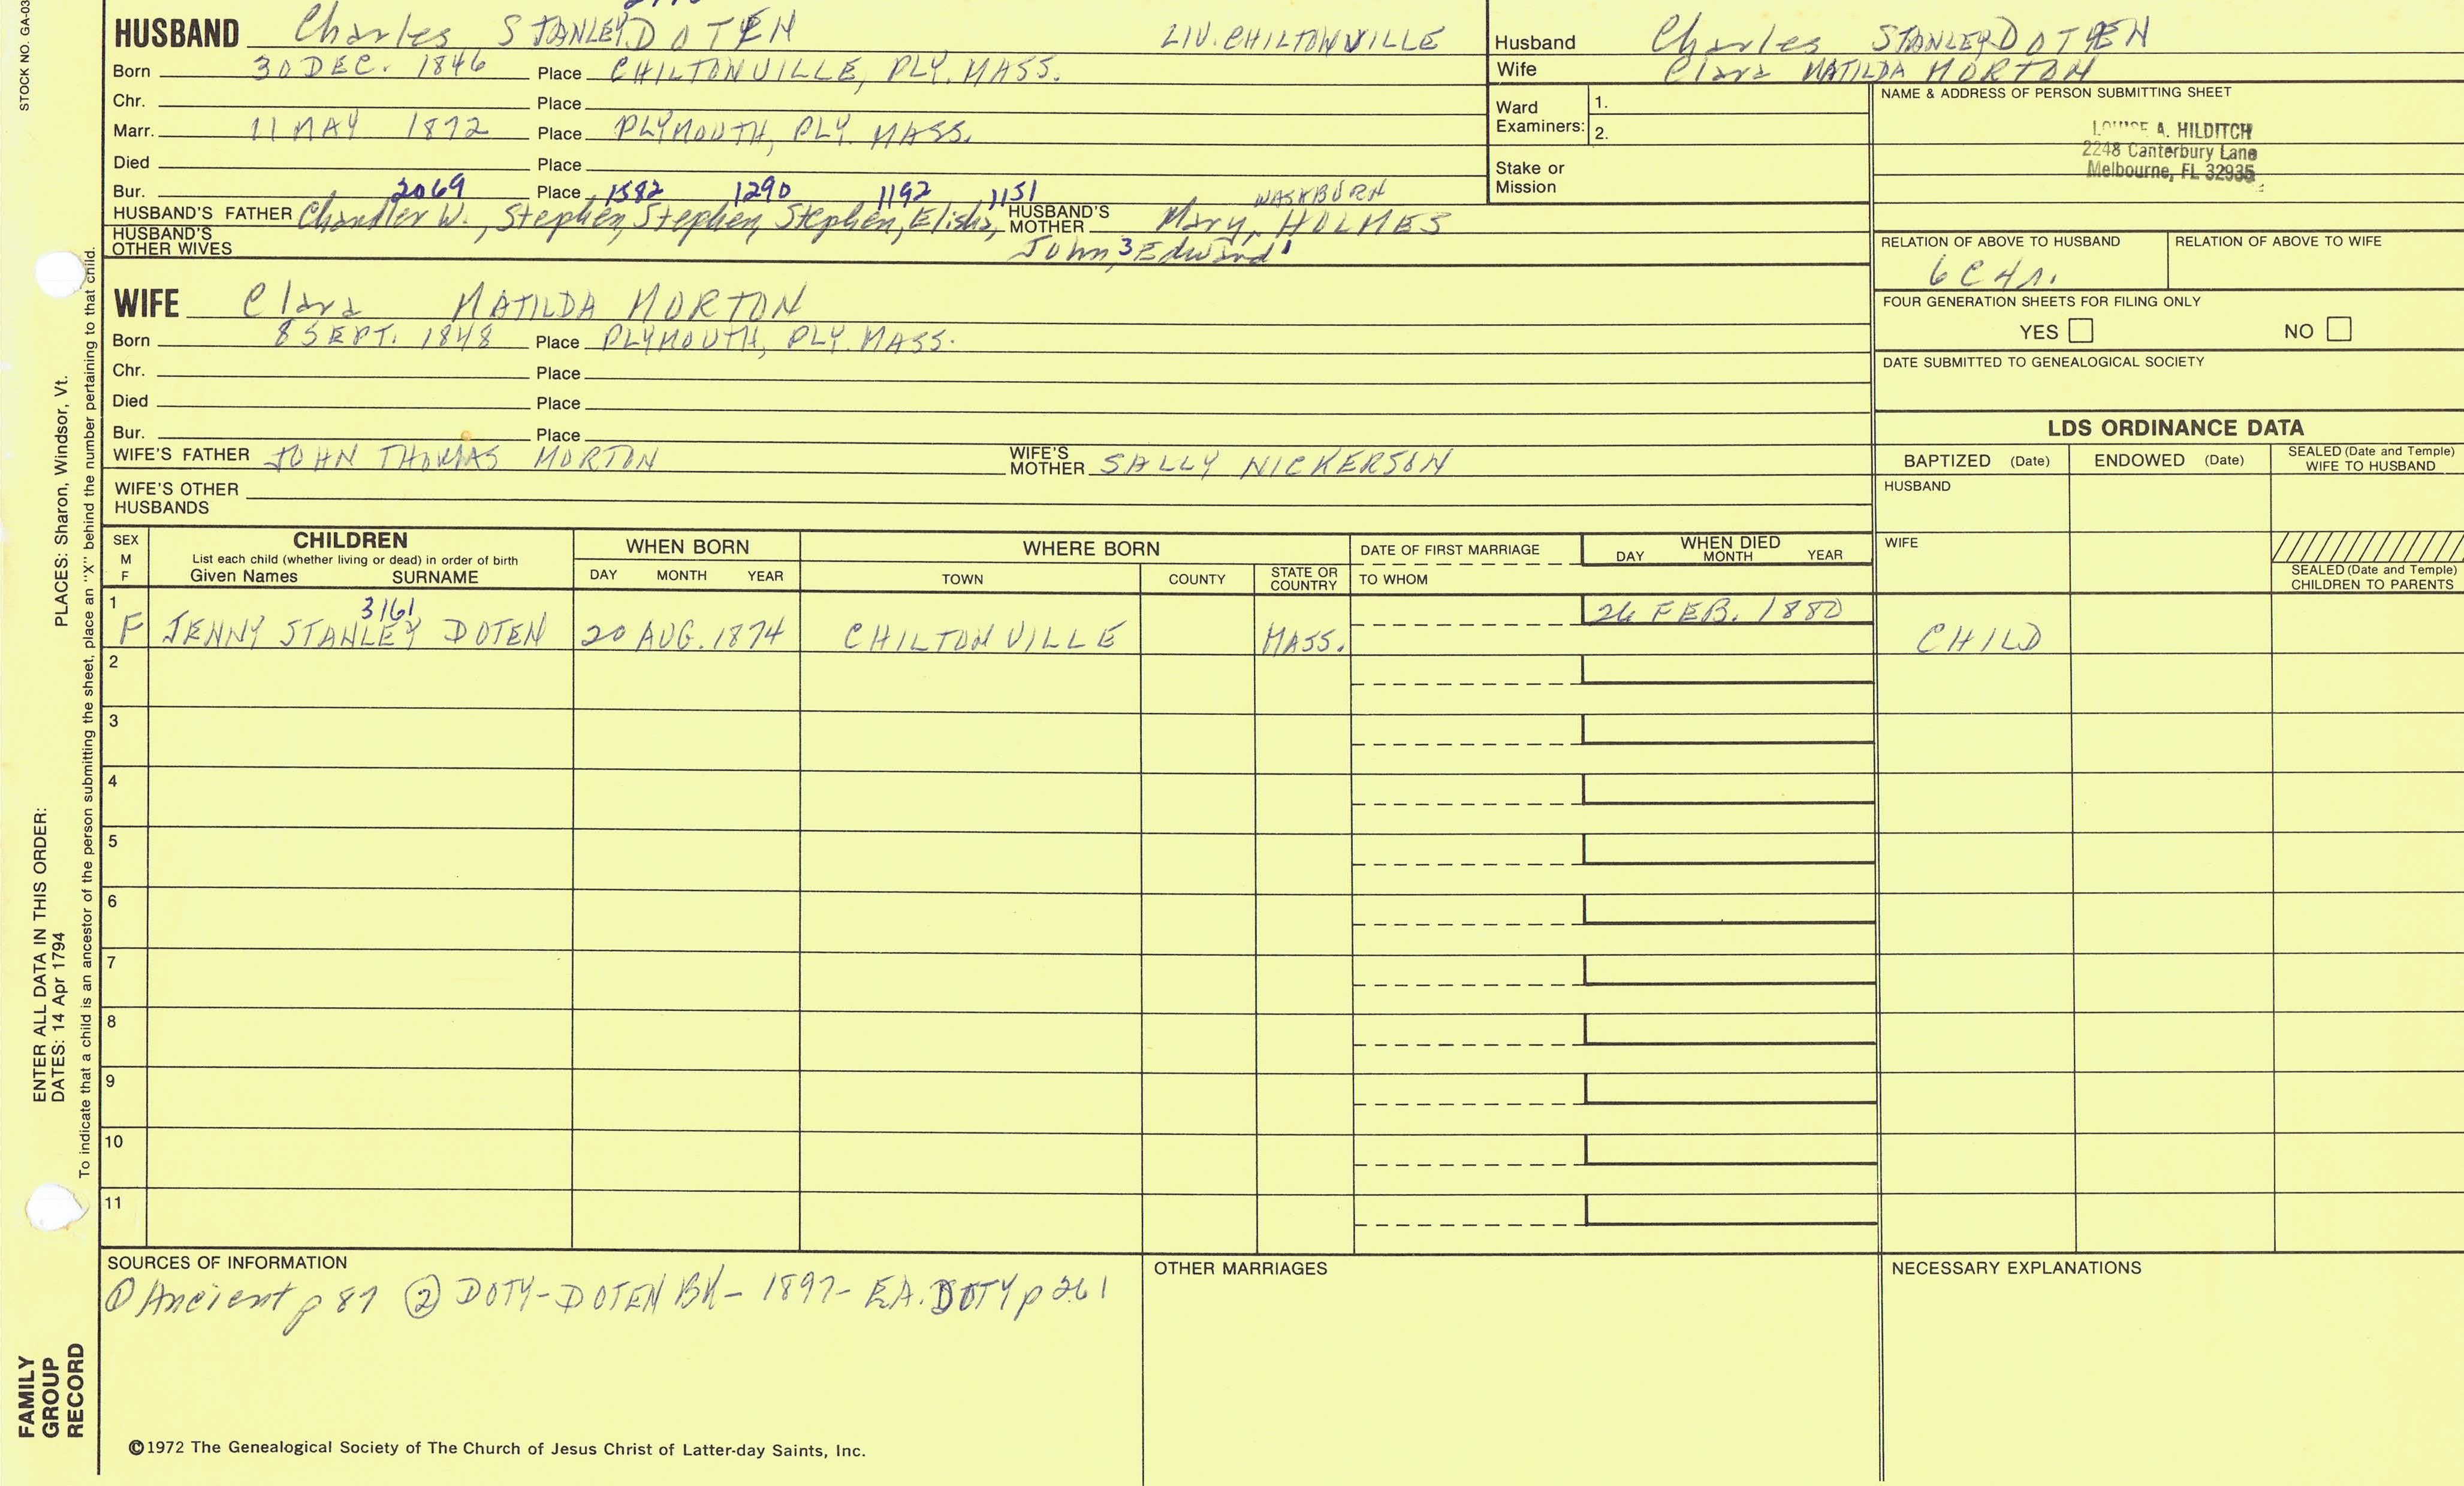 HUSBAND Charles STANLEY DOTEN LIV. CHILTONVILLE
Born 30 DEC. 1846 Place CHILTONVILLE, PLY. MASS.
Chr. Place
Marr. 11 MAY 1872 Place PLYMOUTH, PLY. MASS.
Died Place
Bur. Place
2069 1582 1290 1192 1151 WASHBURN
HUSBAND'S FATHER Chandler W., Stephen, Stephen, Stephen, Elisha, HUSBAND'S MOTHER Mary, HOLMES
HUSBAND'S OTHER WIVES John,3 Edward1
WIFE Clara MATILDA MORTON
Born 8 SEPT. 1848 Place PLYMOUTH, PLY. MASS.
Chr. Place
Died Place
Bur. Place
WIFE'S FATHER JOHN THOMAS MORTON WIFE'S MOTHER SALLY NICKERSON
WIFE'S OTHER HUSBANDS
Husband Charles STANLEY DOTEN
Wife Clara MATILDA MORTON
Ward Examiners: 1.
2.
Stake or Mission
NAME & ADDRESS OF PERSON SUBMITTING SHEET
LOUISE A. HILDITCH
2248 Canterbury Lane
Melbourne, FL 32935
RELATION OF ABOVE TO HUSBAND RELATION OF ABOVE TO WIFE
6C4r.
FOUR GENERATION SHEETS FOR FILING ONLY
YES NO
DATE SUBMITTED TO GENEALOGICAL SOCIETY
LDS ORDINANCE DATA
BAPTIZED (Date) ENDOWED (Date) SEALED (Date and Temple) WIFE TO HUSBAND
HUSBAND
WIFE
SEALED (Date and Temple) CHILDREN TO PARENTS
SEX M F CHILDREN WHEN BORN WHERE BORN DATE OF FIRST MARRIAGE WHEN DIED
List each child (whether living or dead) in order of birth
Given Names SURNAME DAY MONTH YEAR TOWN COUNTY STATE OR COUNTRY TO WHOM DAY MONTH YEAR
3161
1 F JENNY STANLEY DOTEN 20 AUG. 1874 CHILTONVILLE MASS. 26 FEB. 1880 CHILD
2
3
4
5
6
7
8
9
10
11
SOURCES OF INFORMATION
① Ancient p 87 ② DOTY-DOTEN BK- 1897- E.A. DOTY p 261
OTHER MARRIAGES
NECESSARY EXPLANATIONS
©1972 The Genealogical Society of The Church of Jesus Christ of Latter-day Saints, Inc.
STOCK NO. GA-03
PLACES: Sharon, Windsor, Vt.
ENTER ALL DATA IN THIS ORDER:
DATES: 14 Apr 1794
To indicate that a child is an ancestor of the person submitting the sheet, place an "X" behind the number pertaining to that child.
FAMILY
GROUP
RECORD